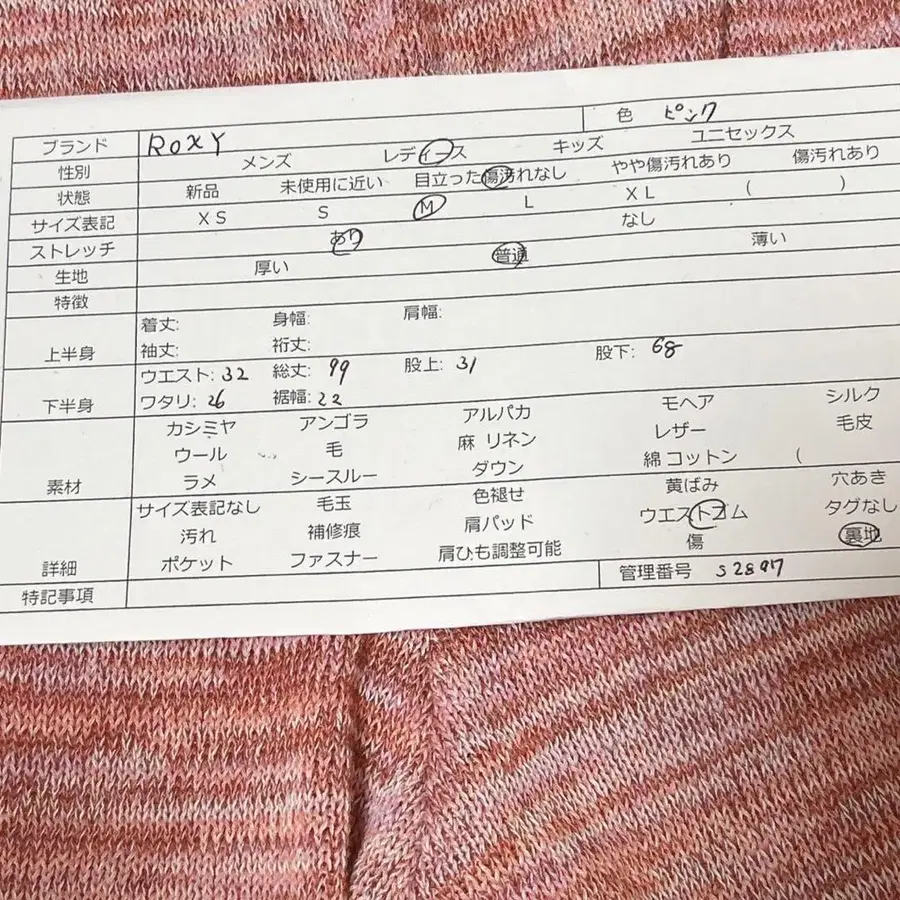 ブランド ROXY 色 ピンク
性別 メンズ レディース キッズ ユニセックス
状態 新品 未使用に近い 目立った傷汚れなし やや傷汚れあり 傷汚れあり
サイズ表記 XS S M L XL ( )
ストレッチ あり なし
生地 厚い 普通 薄い
特徴
上半身 着丈: 身幅: 肩幅:
袖丈: 裄丈:
下半身 ウエスト: 32 総丈: 99 股上: 31 股下: 68
ワタリ: 26 裾幅: 22
素材 カシミヤ アンゴラ アルパカ モヘア シルク
ウール 毛 麻 リネン レザー 毛皮
ラメ シースルー ダウン 綿 コットン (
詳細 サイズ表記なし 毛玉 色褪せ 黄ばみ 穴あき
汚れ 補修痕 肩パッド ウエストゴム タグなし
ポケット ファスナー 肩ひも調整可能 傷 裏地
特記事項 管理番号 S2897